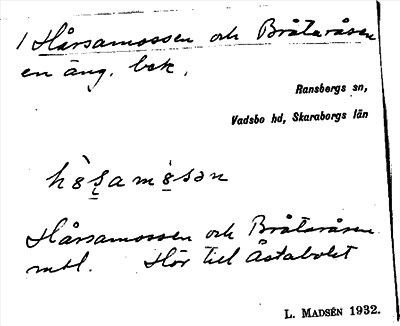 1 Hårsamossen och Bråteråsen
en äng. bek.
Ransbergs sn,
Vadsbo hd, Skaraborgs län
Hårsamossen och Bråteråsen
mtl. Hör till Åstabolet
L. MADSÉN 1932.